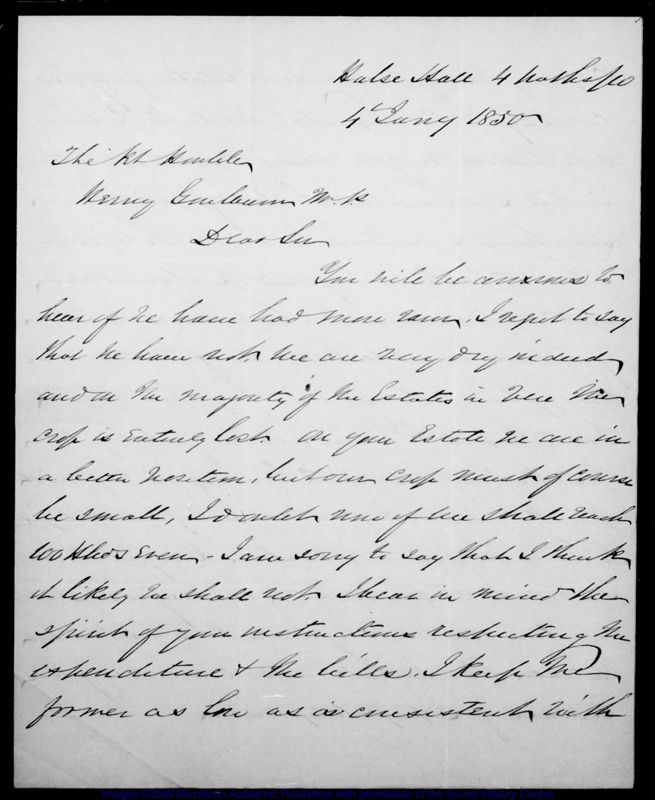 Halse Hall 4
4th Jany 1850
The Rt Honble
Henry Goulburn M.P.
Dear Sir
You will be anxious to
hear if we have had more rain. I regret to say
that we have not. We are very dry indeed
and on the majority of the Estates in Vere the
crop is entirely lost. On your Estate we are in
a better position, but our crop must of course
be small, I doubt now if we shall reach
100 Hhds even - I am sorry to say that I think
it likely we shall not. I bear in mind the
spirit of your instructions respecting the
expenditure & the bills. I keep the
former as low as is consistent with
Images ©2005 Microform Academic Publishers with permission of the Surrey History Centre